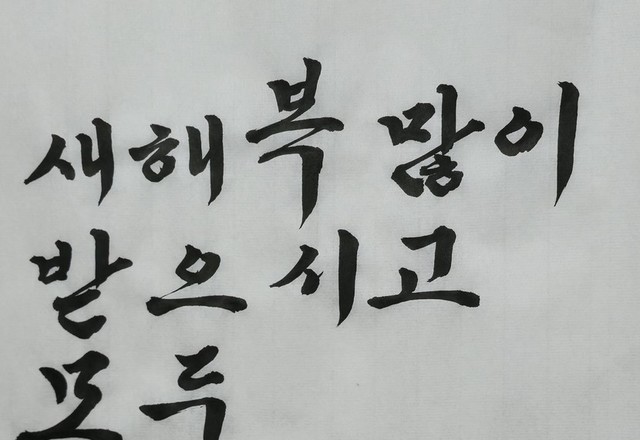 새해 복 많이
받으시고
모두